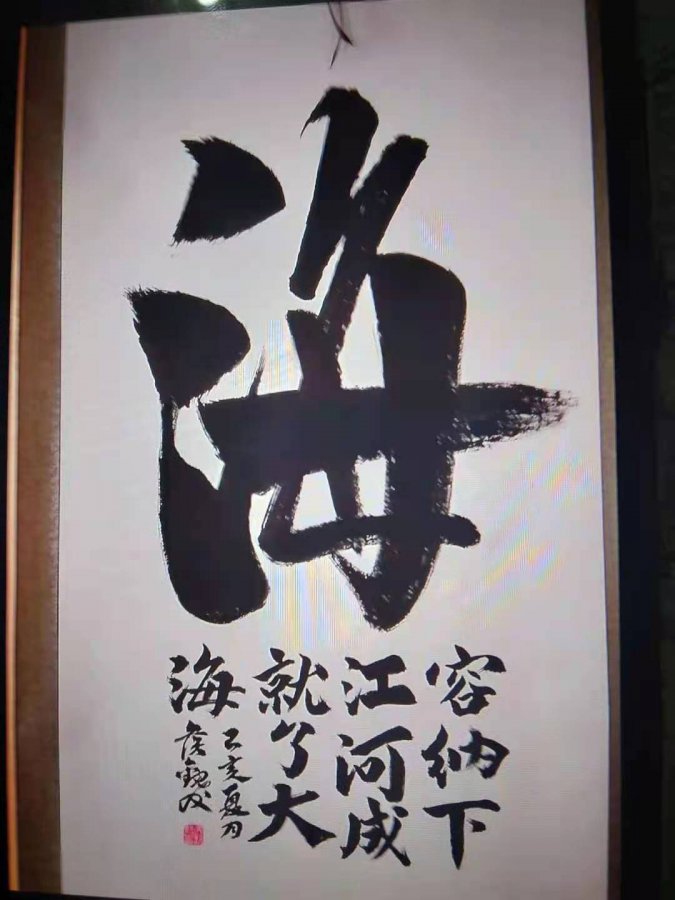 海
容纳下
江河成
就了大
海
己亥夏月